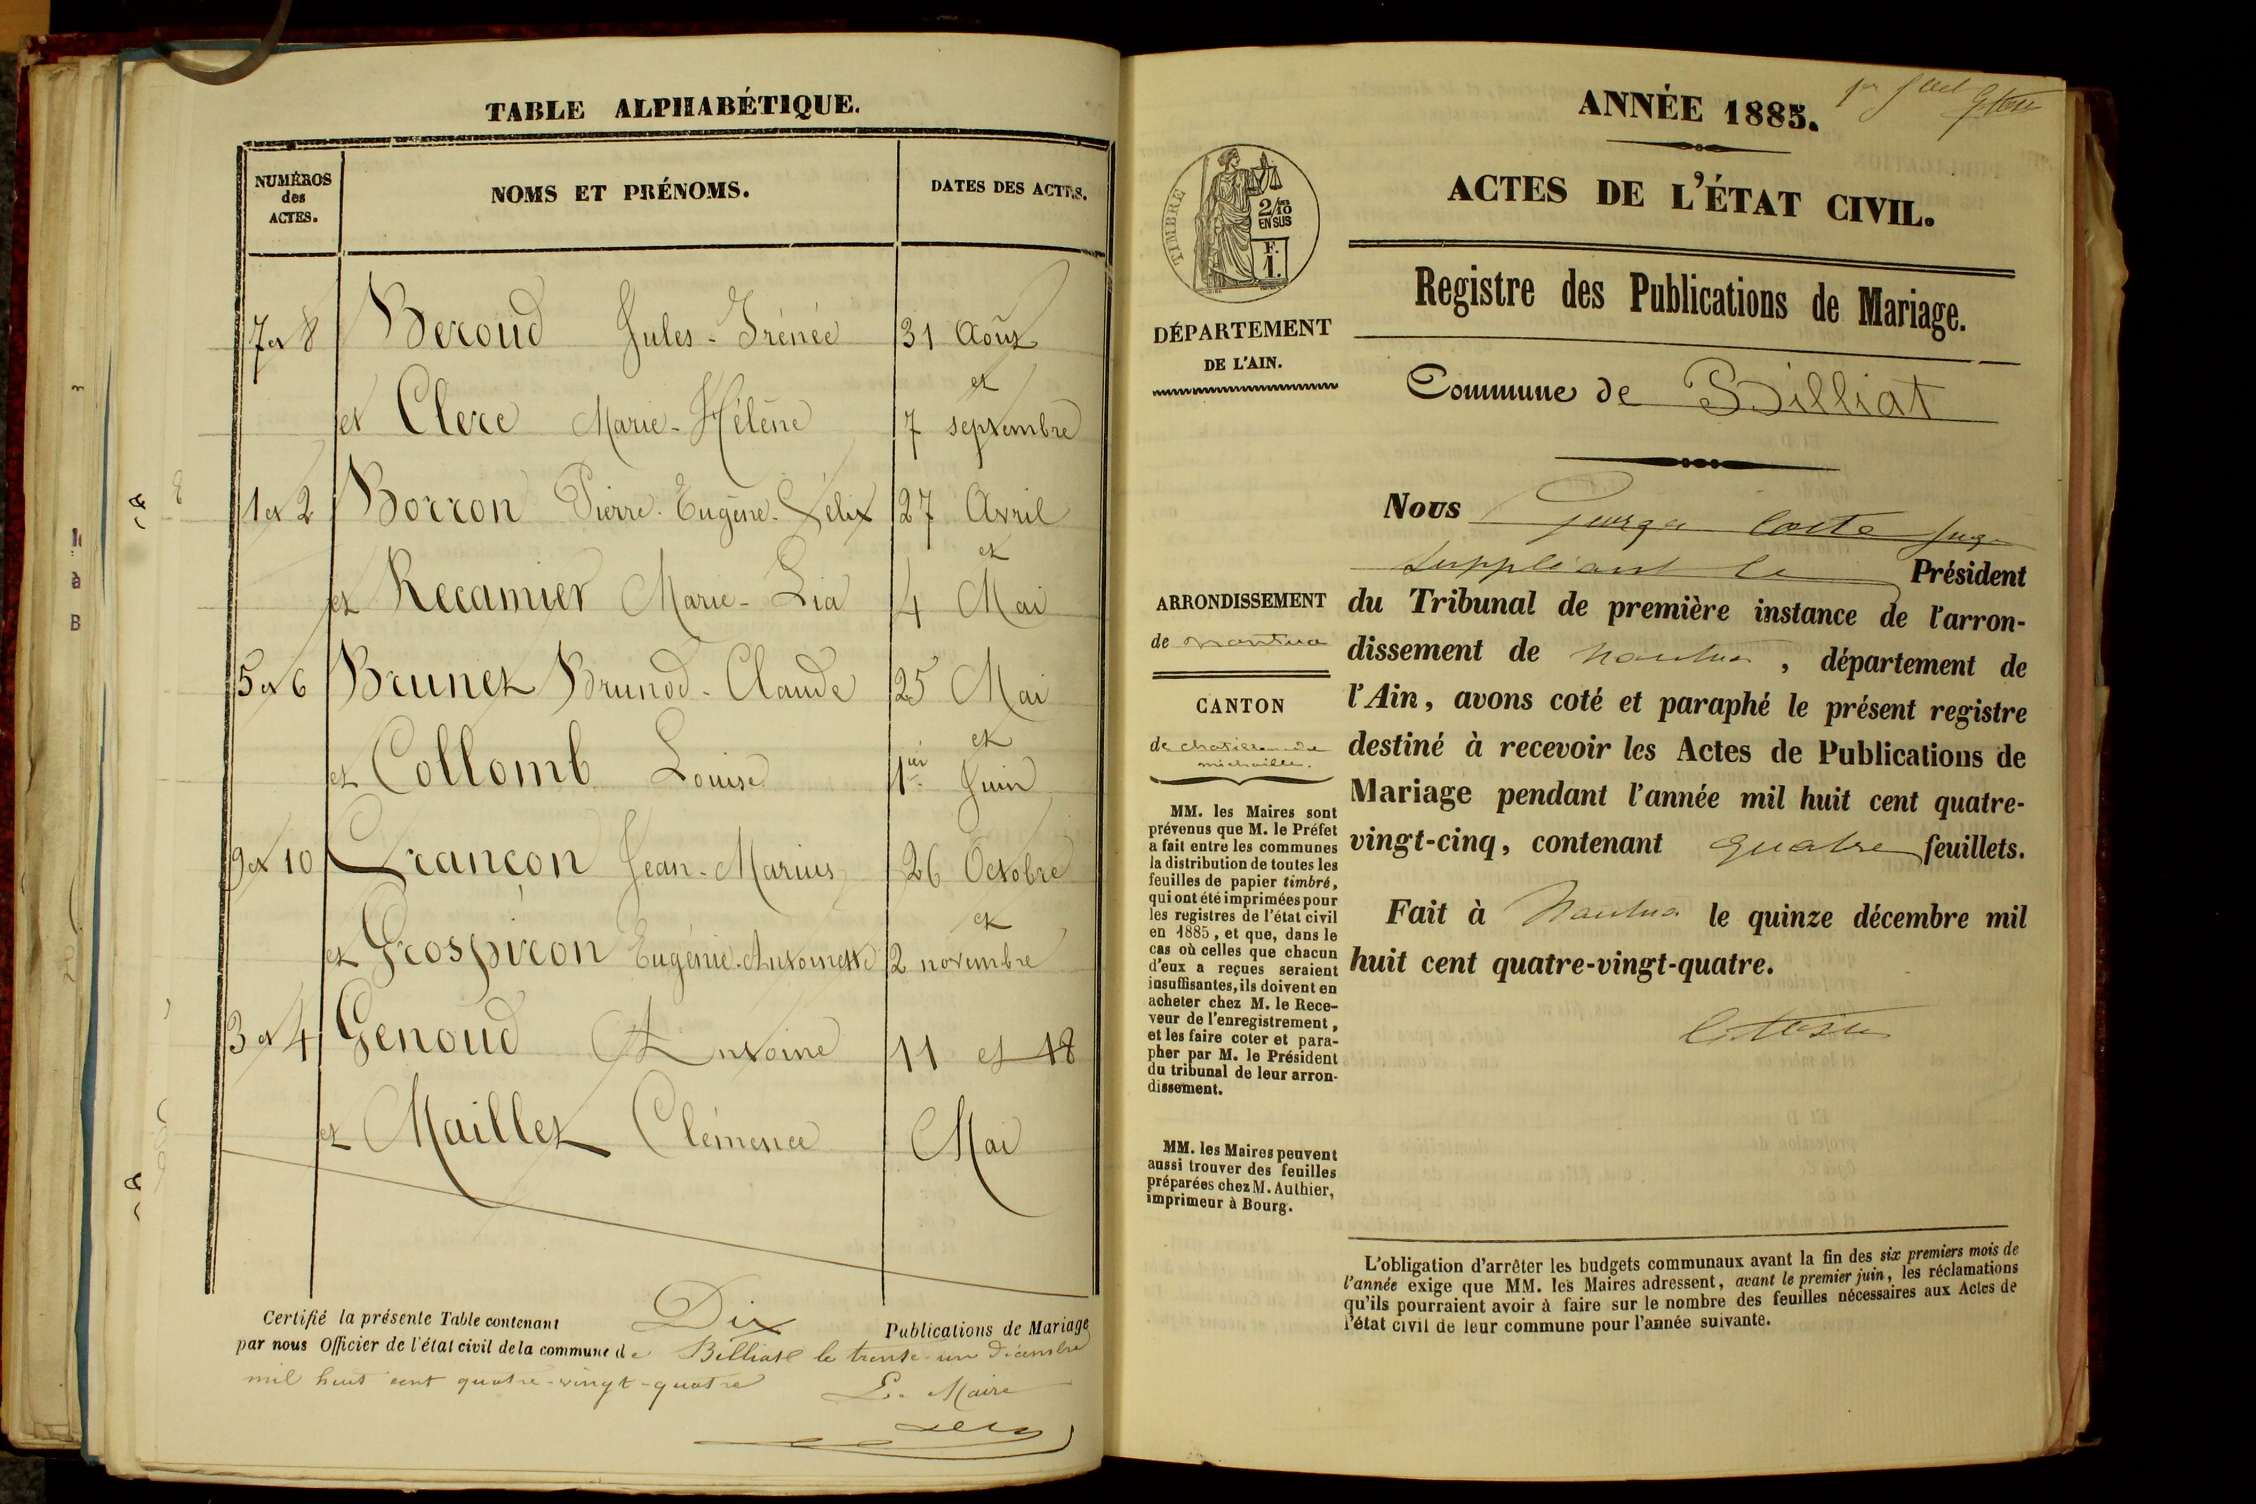 TABLE ALPHABÉTIQUE.
NUMÉROS
des
ACTES.
NOMS ET PRÉNOMS.
DATES DES ACTES.
7 et 8 Beroud Jules-Irénée 31 Août
et
et Clerc Marie-Hélène 7 septembre
1 et 2 Borron Pierre-Eugène-Félix 27 Avril
et
et Recamier Marie-Lia 4 Mai
5 et 6 Brunet Brunod-Claude 25 Mai
et
et Collomb Louise 1ier Juin
9 et 10 Crançon Jean-Marius 26 Octobre
et
et Grospiron Eugénie-Antoinette 2 novembre
3 et 4 Genoud Antoine 11 et 18
et Maillet Clémence Mai
Certifié la présente Table contenant Dix Publications de Mariage
par nous Officier de l'état civil de la commune de Billiat le trente-un Décembre
mil huit cent quatre-vingt-quatre
Le Maire
ANNÉE 1885.
ACTES DE L'ÉTAT CIVIL.
TIMBRE
2/10
EN SUS
F.
1.
Registre des Publications de Mariage.
DÉPARTEMENT
DE L'AIN.
Commune de Billiat
Nous
suppléant le Président
ARRONDISSEMENT
de Nantua
CANTON
de Chatillon-de
michaille.
du Tribunal de première instance de l'arron-
dissement de Nantua, département de
l'Ain, avons coté et paraphé le présent registre
destiné à recevoir les Actes de Publications de
Mariage pendant l'année mil huit cent quatre-
vingt-cinq, contenant quatre feuillets.
Fait à Nantua le quinze décembre mil
huit cent quatre-vingt-quatre.
MM. les Maires sont
prévenus que M. le Préfet
a fait entre les communes
la distribution de toutes les
feuilles de papier timbré,
qui ont été imprimées pour
les registres de l'état civil
en 1885, et que, dans le
cas où celles que chacun
d'eux a reçues seraient
insuffisantes, ils doivent en
acheter chez M. le Rece-
veur de l'enregistrement,
et les faire coter et para-
pher par M. le Président
du tribunal de leur arron-
dissement.
MM. les Maires peuvent
aussi trouver des feuilles
préparées chez M. Authier,
imprimeur à Bourg.
L'obligation d'arrêter les budgets communaux avant la fin des six premiers mois de
l'année exige que MM. les Maires adressent, avant le premier juin, les réclamations
qu'ils pourraient avoir à faire sur le nombre des feuilles nécessaires aux Actes de
l'état civil de leur commune pour l'année suivante.